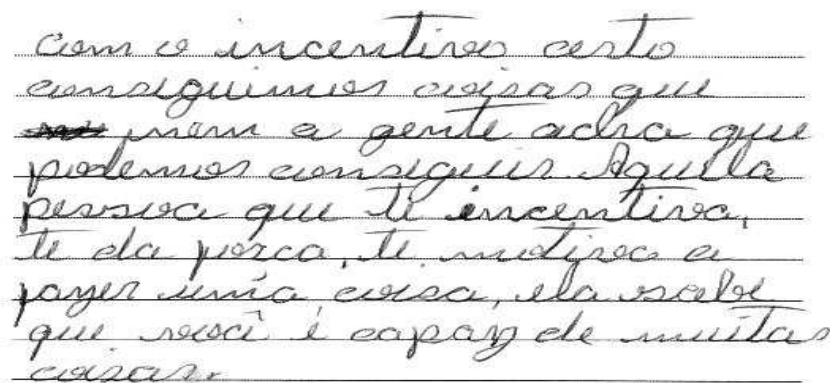 com o incentivo certo
conseguimos coisas que
nem a gente acha que
podemos conseguir. Aquela
pessoa que te incentiva,
te da força, te motiva a
fazer uma coisa, ela sabe
que você é capaz de muitas
coisas.